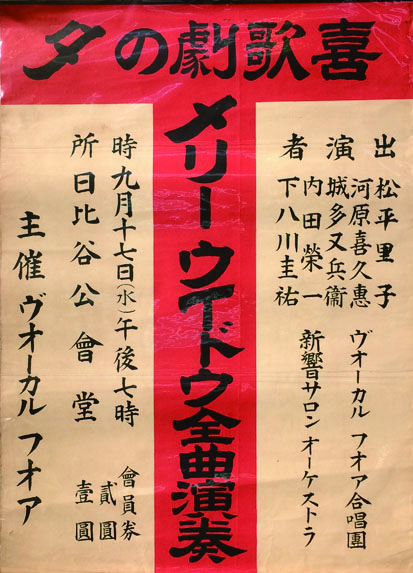 喜歌劇の夕
出 松平里子
河原喜久惠
演 城多又兵衛
内田榮一
者 下八川圭祐
ヴオーカル フオア合唱團
新響サロン オーケストラ
メリーウイドウ全曲演奏
時 九月十七日(水)午後七時
所 日比谷公會堂
會員券
貳圓
壹圓
主催 ヴオーカル フオア